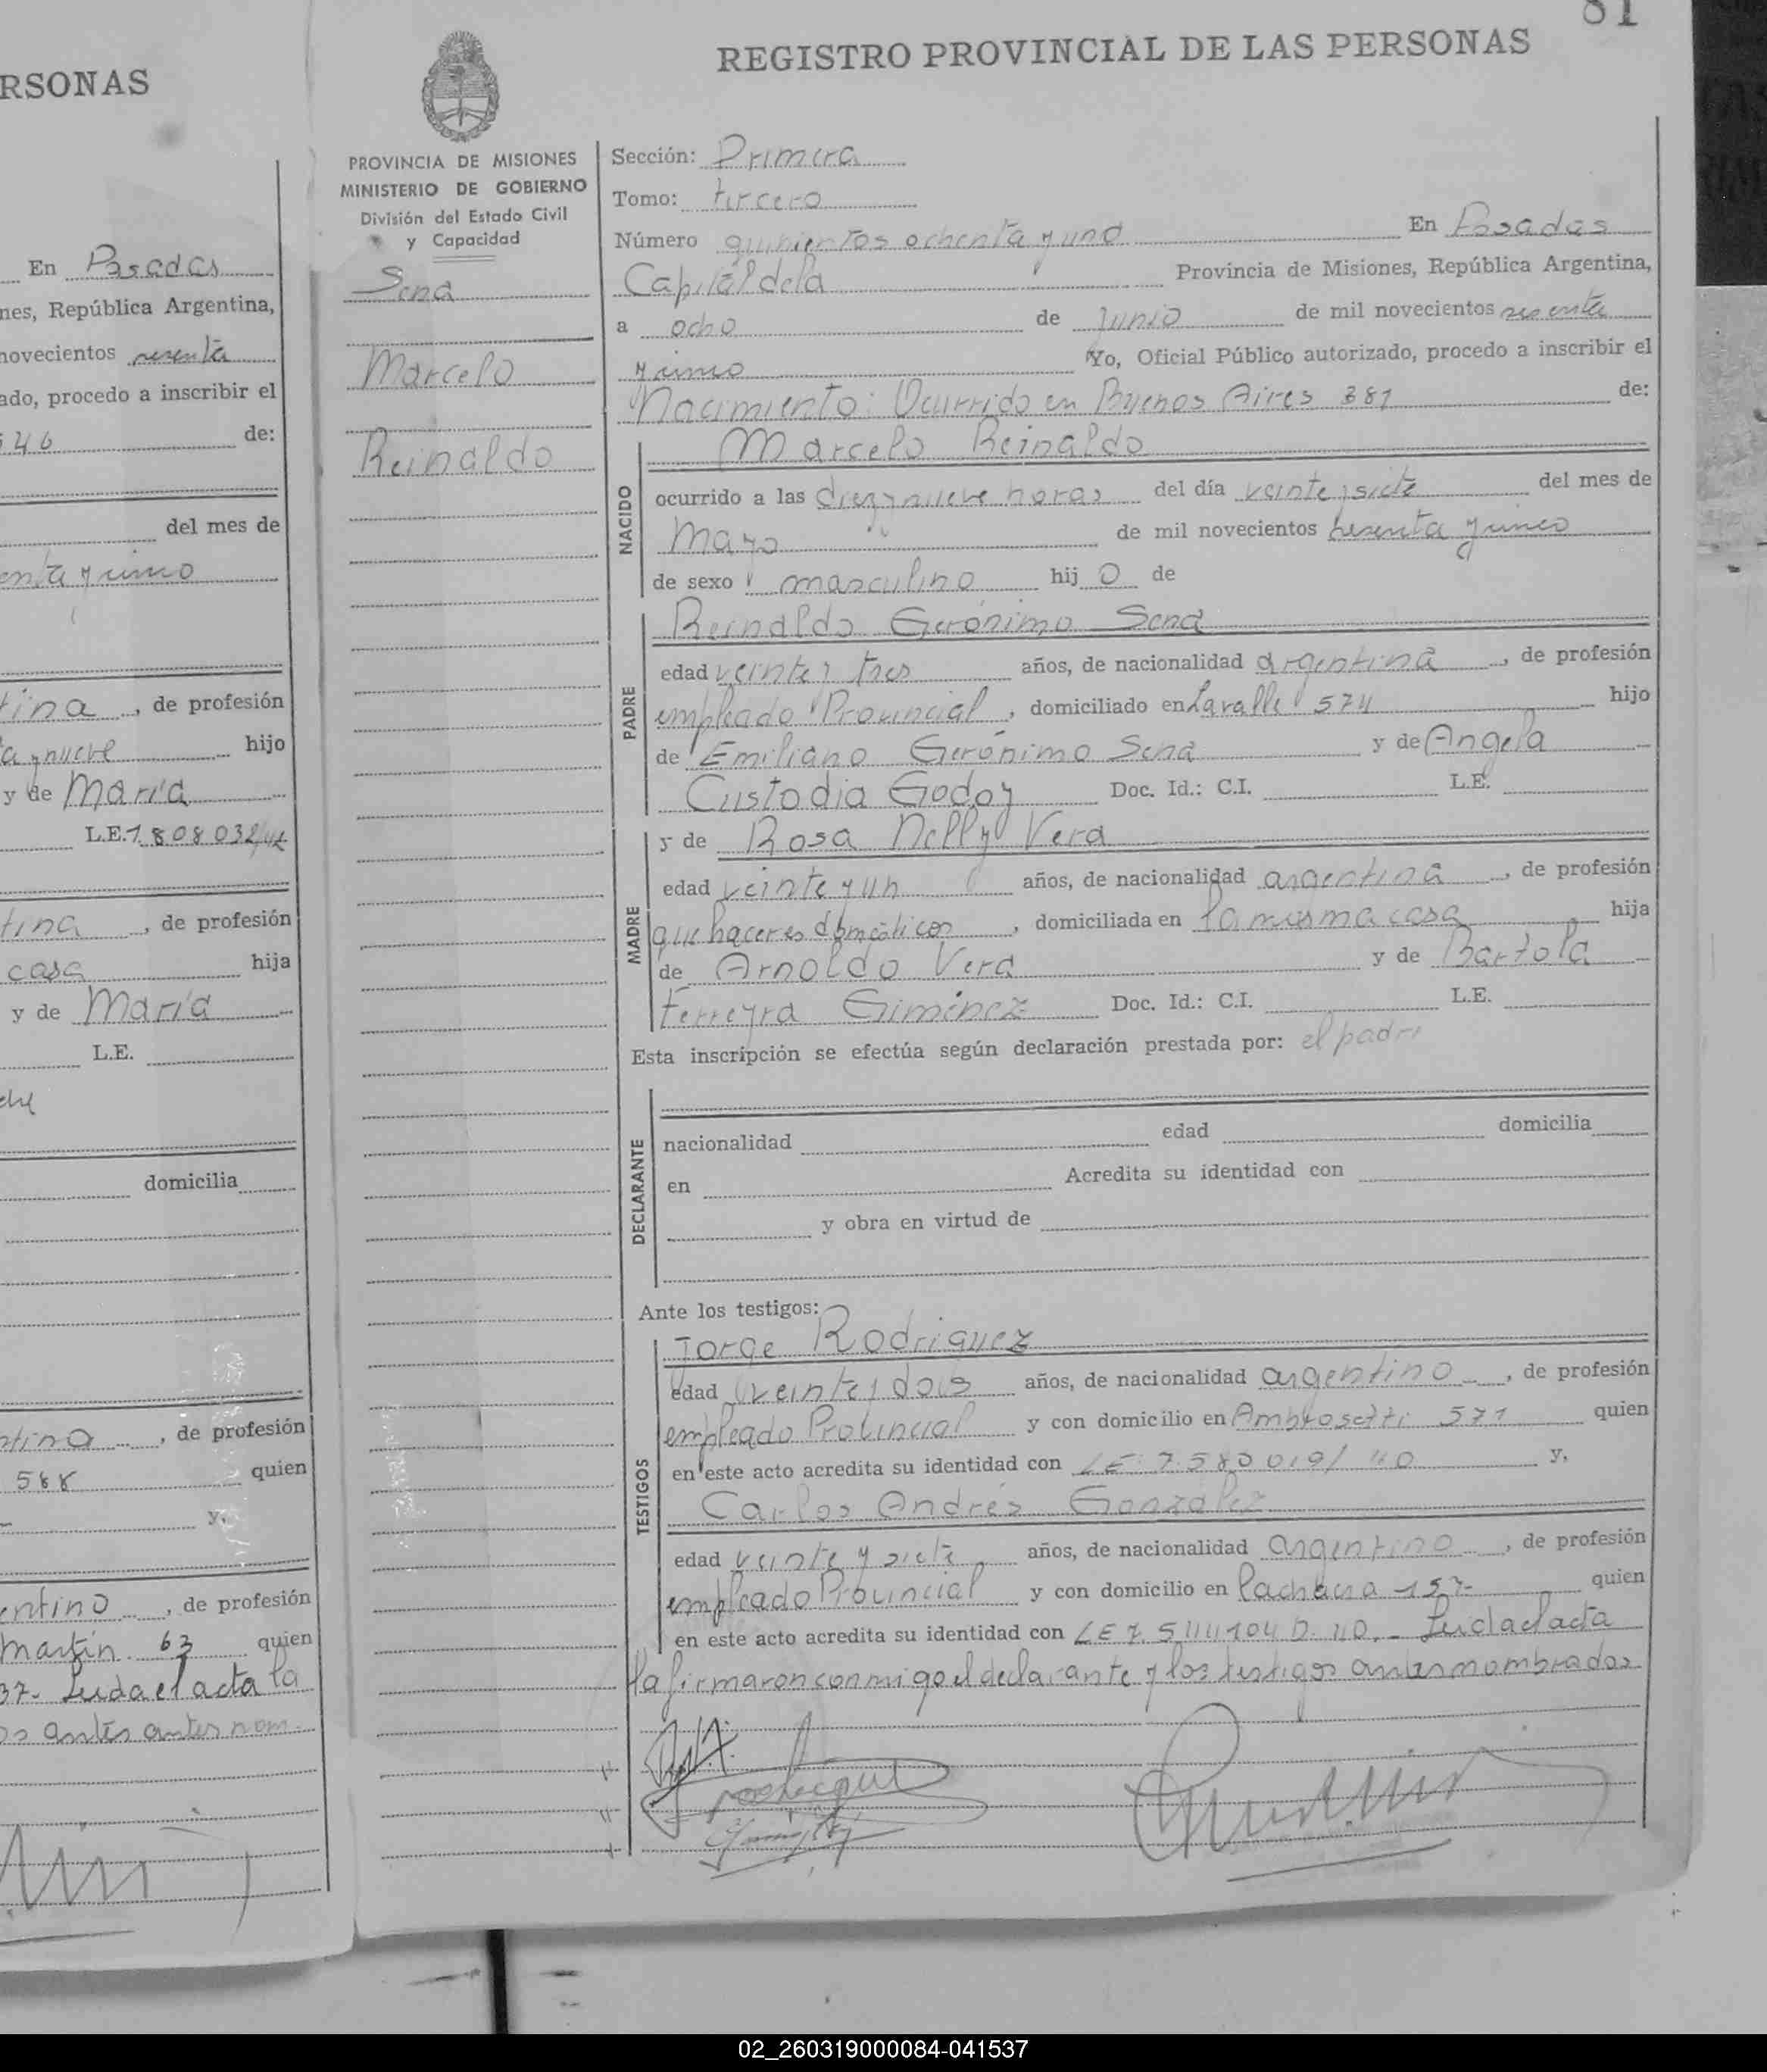 RSONAS
En Posadas
nes, República Argentina,
novecientos sesenta
ado, procedo a inscribir el
46 de:
del mes de
enta y cinco
tina, de profesión
a y nueve hijo
y de María
L.E. 1.808.032/42
tina, de profesión
casa hija
y de María
L.E.
domicilia
ntina, de profesión
588 quien
y,
entino, de profesión
martín 63 quien
37.- Leida el acta la
os antes antes nom-
81
REGISTRO PROVINCIAL DE LAS PERSONAS
PROVINCIA DE MISIONES
MINISTERIO DE GOBIERNO
División del Estado Civil
y Capacidad
Sena
Marcelo
Reinaldo
Sección: Primera
Tomo: tercero
Número quinientos ochenta y uno En Posadas
Capital de la Provincia de Misiones, República Argentina,
a ocho de Junio de mil novecientos sesenta
y cinco Yo, Oficial Público autorizado, procedo a inscribir el
Nacimiento: Ocurrido en Buenos Aires 381 de:
Marcelo Reinaldo
NACIDO
ocurrido a las diez y nueve horas del día veinte y siete del mes de
Mayo de mil novecientos sesenta y cinco
de sexo masculino hij o de
Reinaldo Gerónimo Sena
PADRE
edad veinte y tres años, de nacionalidad argentina, de profesión
empleado Provincial, domiciliado en Lavalle 574 hijo
de Emiliano Gerónimo Sena y de Angela
Custodia Godoy Doc. Id.: C.I. L.E.
y de Rosa Nelly Vera
MADRE
edad veinte y un años, de nacionalidad argentina, de profesión
que haceres domésticos, domiciliada en la misma casa hija
de Arnoldo Vera y de Bartola
Ferreyra Giménez Doc. Id.: C.I. L.E.
Esta inscripción se efectúa según declaración prestada por: el padre
DECLARANTE
nacionalidad edad domicilia
en Acredita su identidad con
y obra en virtud de
Ante los testigos:
Jorge Rodriguez
TESTIGOS
edad veinte y dois años, de nacionalidad argentino, de profesión
empleado Provincial y con domicilio en Ambrosetti 571 quien
en este acto acredita su identidad con LE 7.580019/40 y,
Carlos Andrés González
edad veinte y siete años, de nacionalidad argentino, de profesión
empleado Provincial y con domicilio en 157- quien
en este acto acredita su identidad con LE 7.5444104 D. 40.- Leida el acta
la firmaron conmigo el declarante y los testigos antes nombrados
02_260319000084-041537